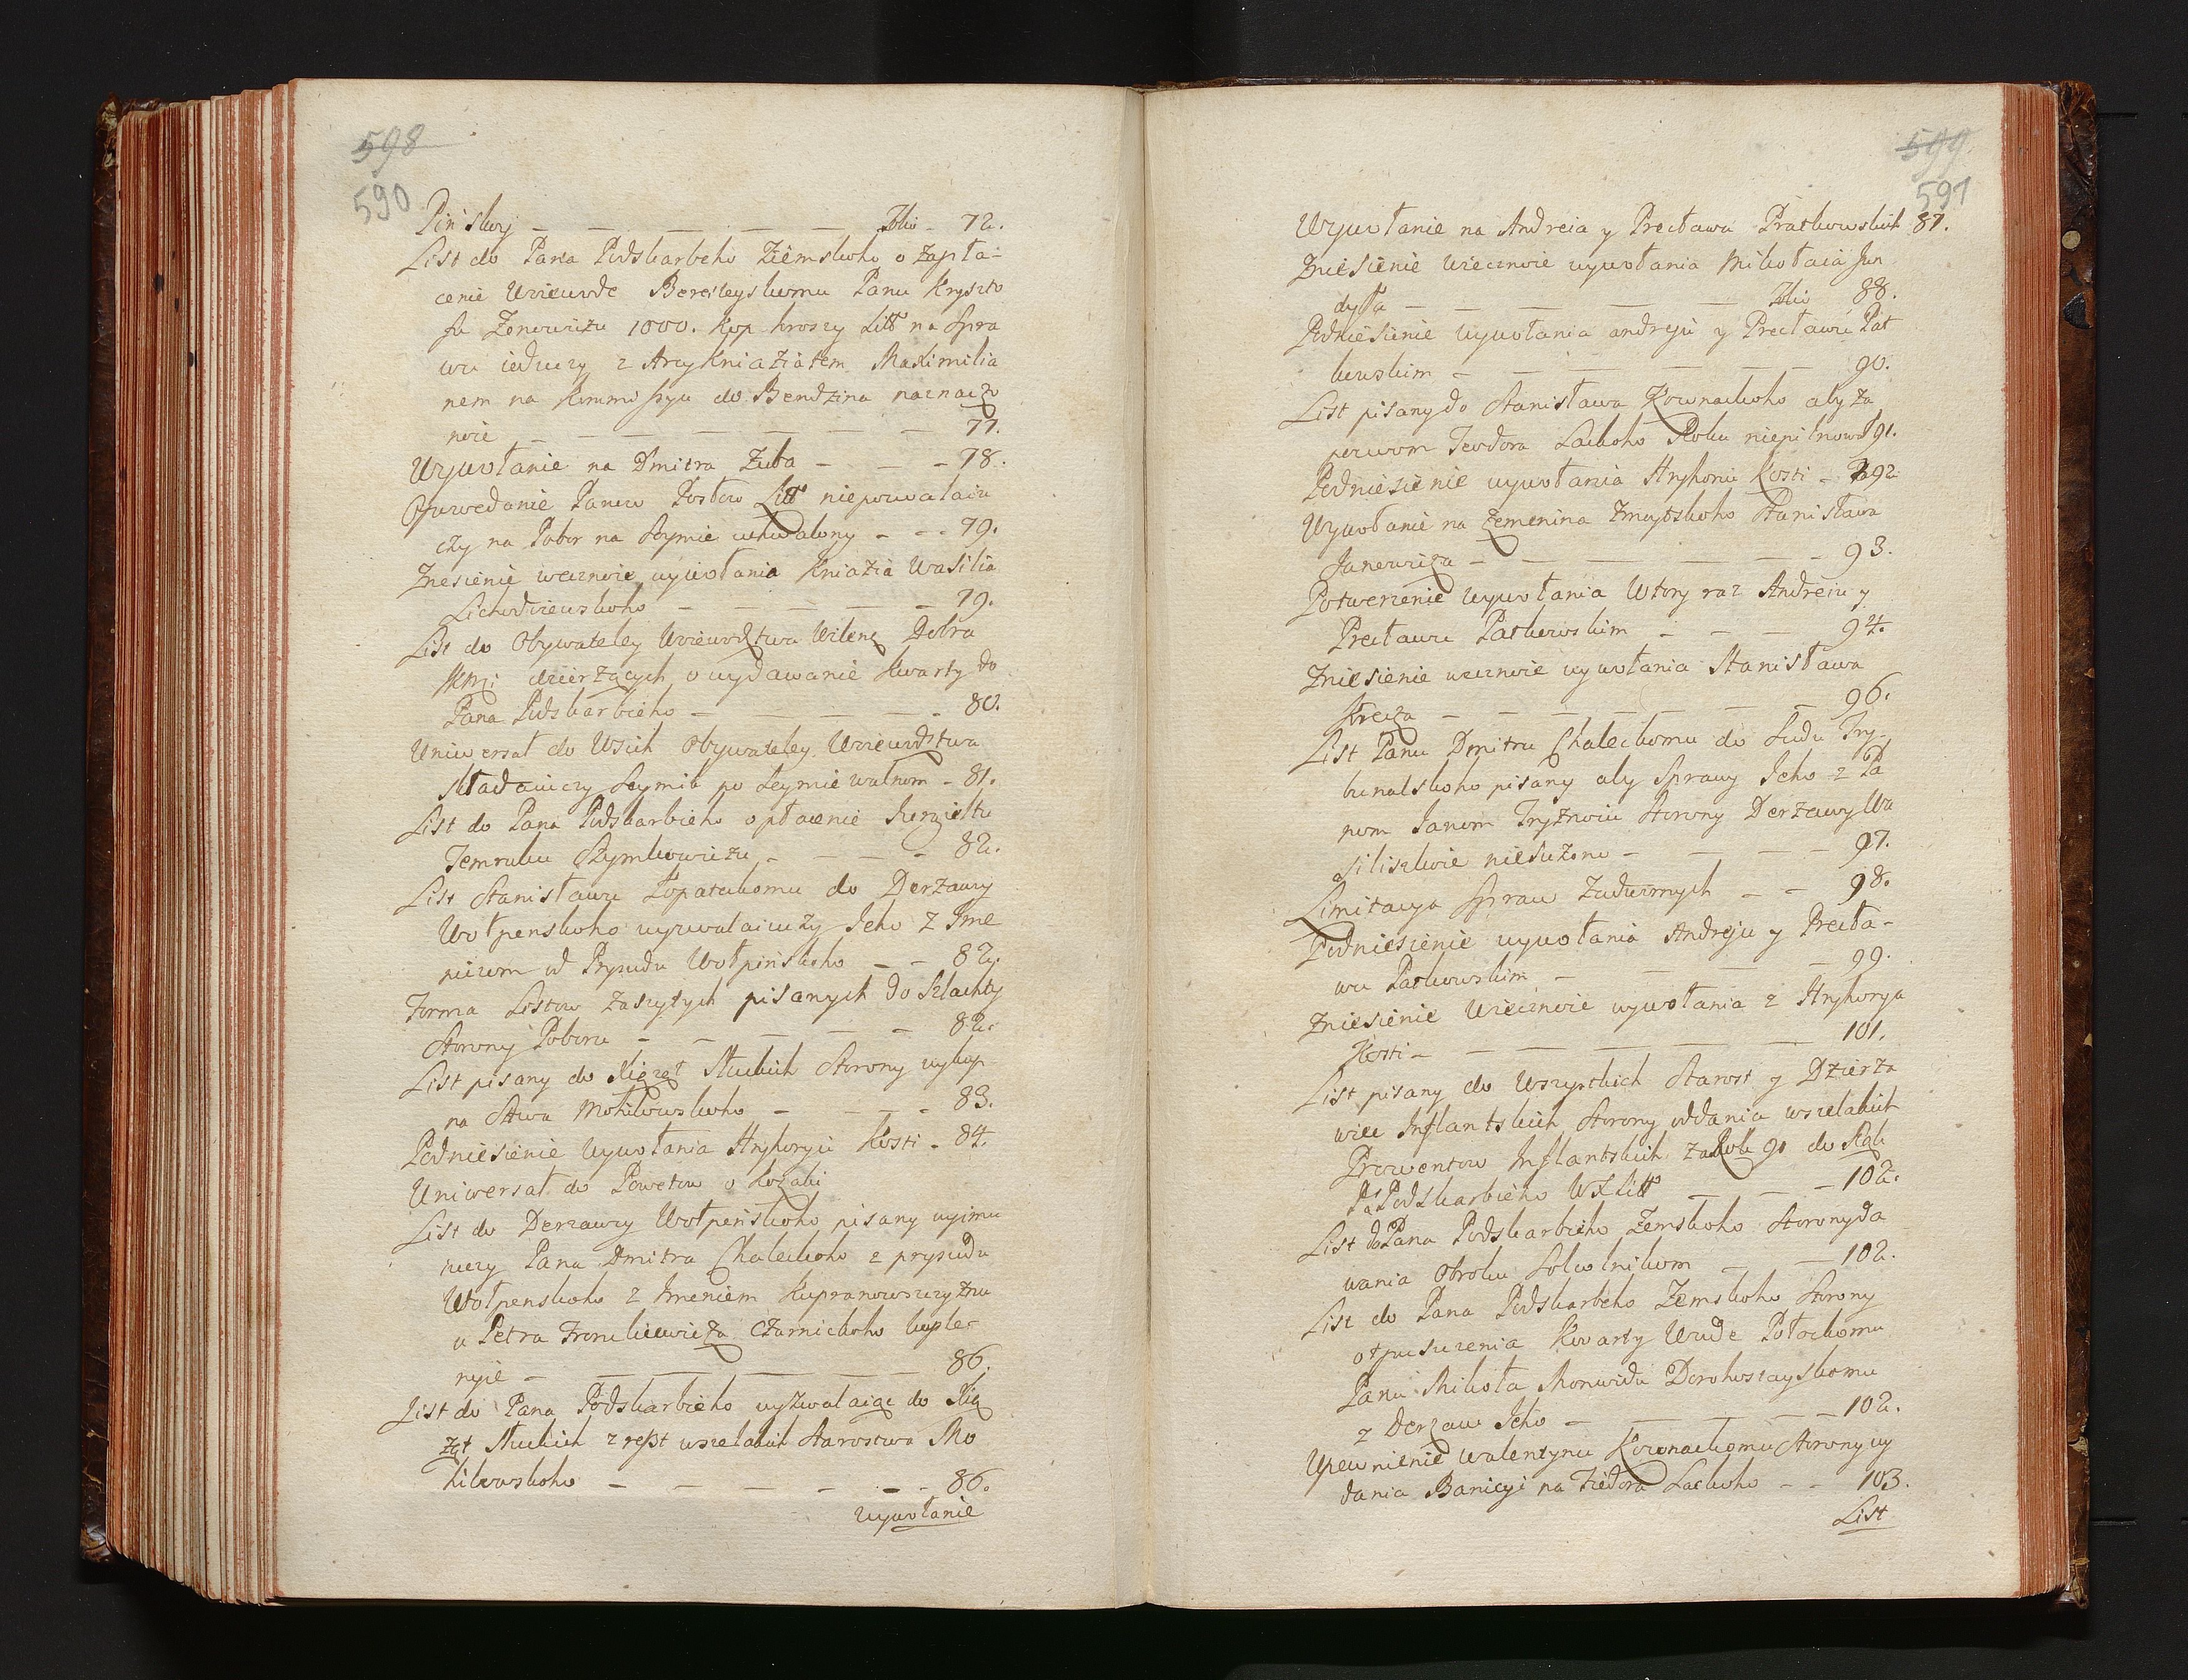 598
590
Pinskoy — — — — — Folio - 72.
List do Pana Podskarbeho Ziemskoho o zapła-
cenie Woiewode Beresteyskomu Panu Kryszto
fu Zenowiczu 1000. kop hroszy Litt na Spra
wu iduczy z Arcykniaziatem Maximilia
nem na Kommissyu do Bendzina naznaczo
noie — — — — — — 77.
Wywołanie na Dmitra Zuba — — - 78.
Opowedanie Panow Posłow Litt niepozwalaiu
czy na Pobor na Seymie uchwalony - - - 79.
Znesienie wecznoie wywołania Kniazia Wasilia
Lichodziewskoho — — — — 79.
List do Obywateley Woiewodztwa Wilenz Dobra
JKMci dzierżących o wydawanie kwarty do
Pana Podskarbieho — — — - 80.
Uniwersał do Wsich Obywateley Woiewodztwa
składaiuczy Seymik po Seymie walnom - 81.
List do Pana Podskarbieho o płacenie Iurgieltu
Temruku Szymkowiczu - - - - 82.
List Stanisławu Łopatckomu do Derżawy
Wołpenskoho wyzwalaiuczy Jeho z Ime
niczom od Prysudu Wołpinskoho — - 82.
Forma Listow zaszytych pisanych do Szlachty
Storony Poboru — — — — - 82.
List pisany do Xiążąt Słuckich Storony wykup-
na Stwa Mohilowskoho — - - - 83.
Podniesienie wywołania Hryhoryu Kosti - 84.
Uniwersał do Powetow o Kozaki
List do Derzawy Wołpenskoho pisany wyimu
iuczy Pana Dmitra Chaleckoho z prysudu
Wołpenskoho z Imeniem Kupranowszczyznu
u Petra Fronckiewicza Czarnickoho kuple-
nyie — — — — — 86.
List do Pana Podskarbieho wyzwalaiąc do Xią
żąt Słuckich z reszt wszelakich Starostwa Mo
hilowskoho — — — — - - 86.
wywołanie
599
591
Wywołanie na Andreia y Precława Pratkowskich 87.
Zniesienie wiecznoie wywołania Mikołaia Jun
dyła — — — — — Folio 88.
Podniesienie wywołania andreju y Precławu Pat
kowskim — — — — — 90.
List pisany do Stanisława Kownackoho aby za
pozwom Teodora Lackoho Roku niepilnował 91.
Podniesienie wywołania Hryhoriu Kosti - 92
Wywołanie na Zemenina Zmoytskoho Stanisława
Janowicza — — — — — 93.
Potwerzenie wywołania Wtory raz Andreiu y
Precławu Patkowskim — — — 94.
Zniesienie wecznoie wywołania Stanisława
— — — — — — 96.
List Panu Dmitru Chaleckomu do Sudu Try-
bunalskoho pisany aby Sprawy Jeho z Pa
nom Janom Tryznoiu Storony Derzawy Wa
siliszkoie niesużono — — — — 97.
Limitacya Spraw Zadwornych — — 98.
Podniesienie wywołania Andreju y Precła-
wu Patkowskim — — — — 99.
Zniesienie wiecznoie wywołania z Hryhorya
Kosti — — — — — — 101.
List pisany do Wszystkich Starost y Dzierża
wiec Inflantskich Storony oddania wszelakich
Prowentow Inflantskich za Rok 90 do Rąk
Pa Podskarbieho WX Litt — — — 102.
List do Pana Podskarbieho Zemskoho Storony da
wania Obroku Sokolnikom — — 102.
List do Pana Podskarbeho Zemskoho Storony
otpuszczenia Kwarty Wwde Połockomu
Panu Mikoła Monwidu Dorohostayskomu
z Derzaw Jeho — — — — 102.
Upewnienie Walentynu Kownackomu Storony wy
dania Banicyi na Fiedora Lackoho - - 103.
List